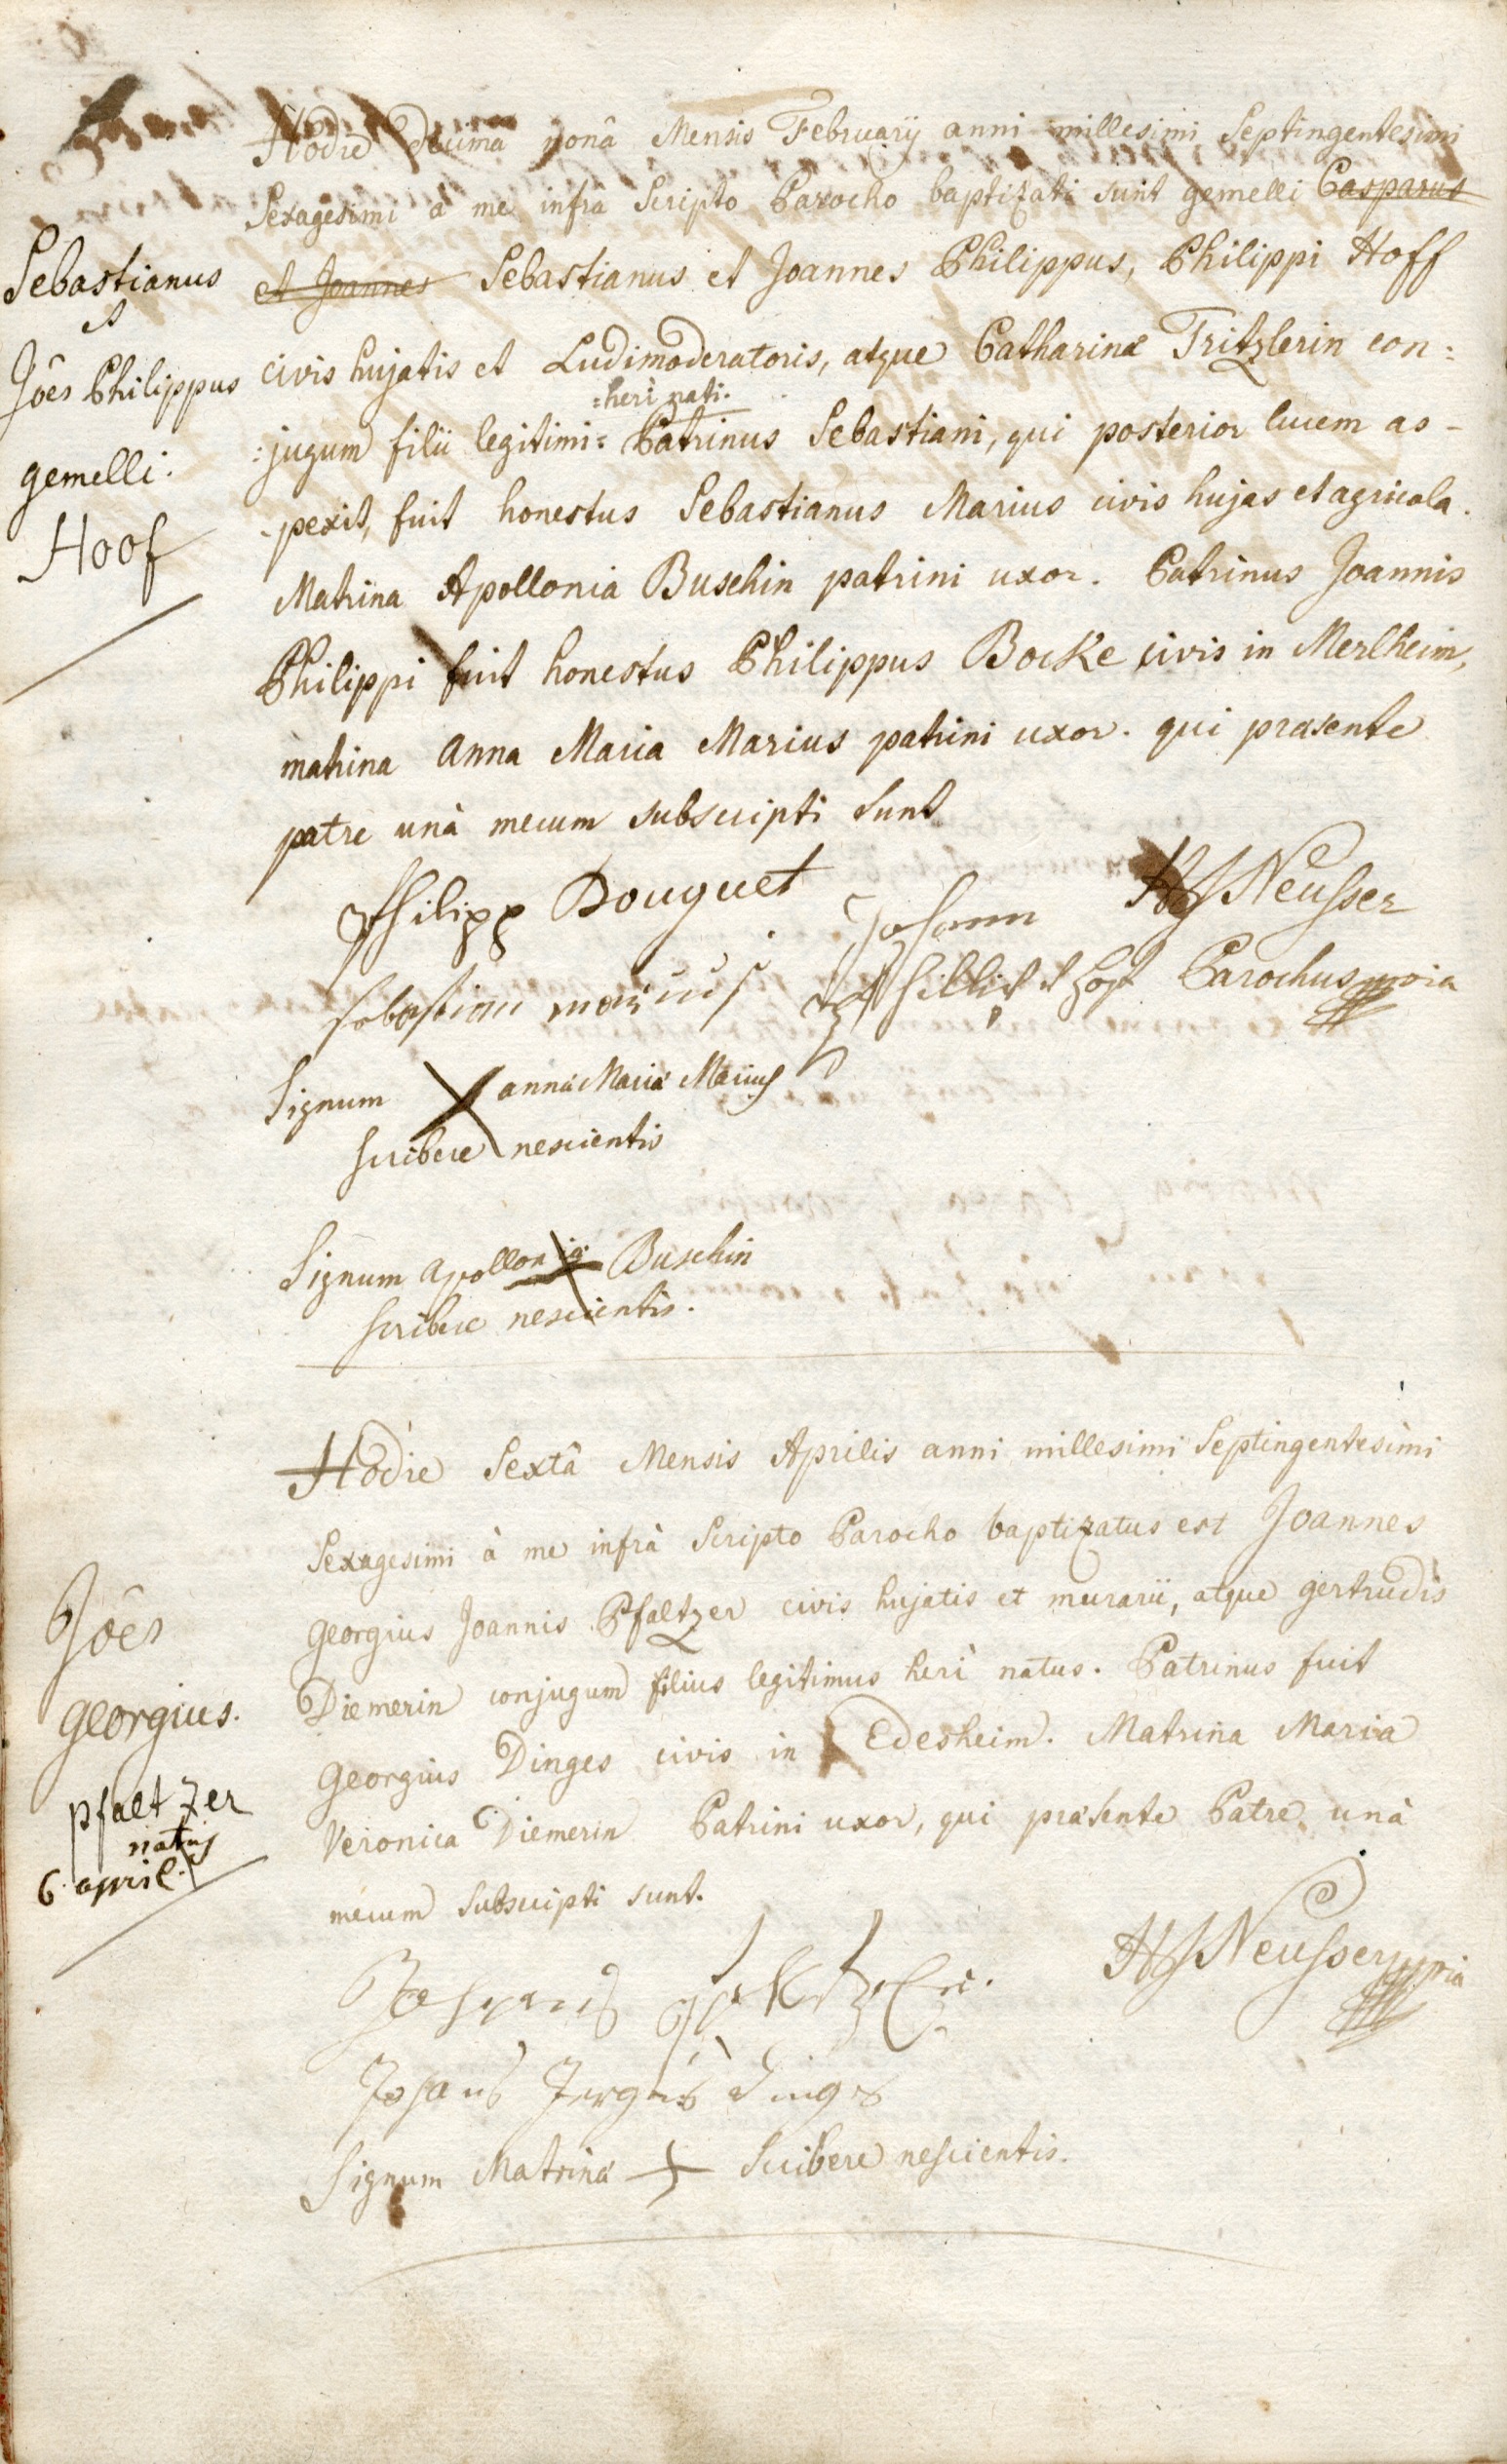 Hodie decimâ nonâ Mensis Februarÿ anni millesimi Septingentesimi
Sexagesimi à me infrà Scripto Parocho baptizati sunt gemelli Casparus
et Joannes Sebastianus et Joannes Philippus, Philippi Hoff
civis hujatis et Ludimoderatoris, atque Catharinæ Tritzlerin con:
=heri nati.
:jugum filii legitimi= Patrinus Sebastiani, qui posterior lucem as-
-pexit, fuit honestus Sebastianus Marius civis hujas et agricola.
Matrina Apollonia Buschin patrini uxor. Patrinus Joannis
Philippi fuit honestus Philippus Bocke civis in Merlheim,
matrina Anna Maria Marius patrini uxor. qui præsente
patre unà mecum subscripti sunt
Sebastianus
et
Jôes Philippus
gemelli.
Hoof
Philipp Bouquet
HJNeusser
Parochus mpia
Johann
Phillip Hof
sebastian marius
Signum anna Maria Marius
scribere nescientis
Signum apollonia Buschin
scribere nescientis.
Hodie Sextâ Mensis Aprilis anni millesimi Septingentesimi
Sexagesimi à me infrà Scripto Parocho baptizatus est Joannes
Georgius Joannis Pfaltzer civis hujatis et murarii, atque gertrudis
Diemerin conjugum filius legitimus heri natus. Patrinus fuit
Georgius Dinges civis in Edesheim. Matrina Maria
Veronica Diemerin Patrini uxor, qui præsente Patre unà
mecum subscripti sunt.
Jôes
georgius.
pfaltzer
natus
6. april.
HJNeusser mpia
Johans Jergus Dinges
Signum Matrinæ + Scribere nescientis.